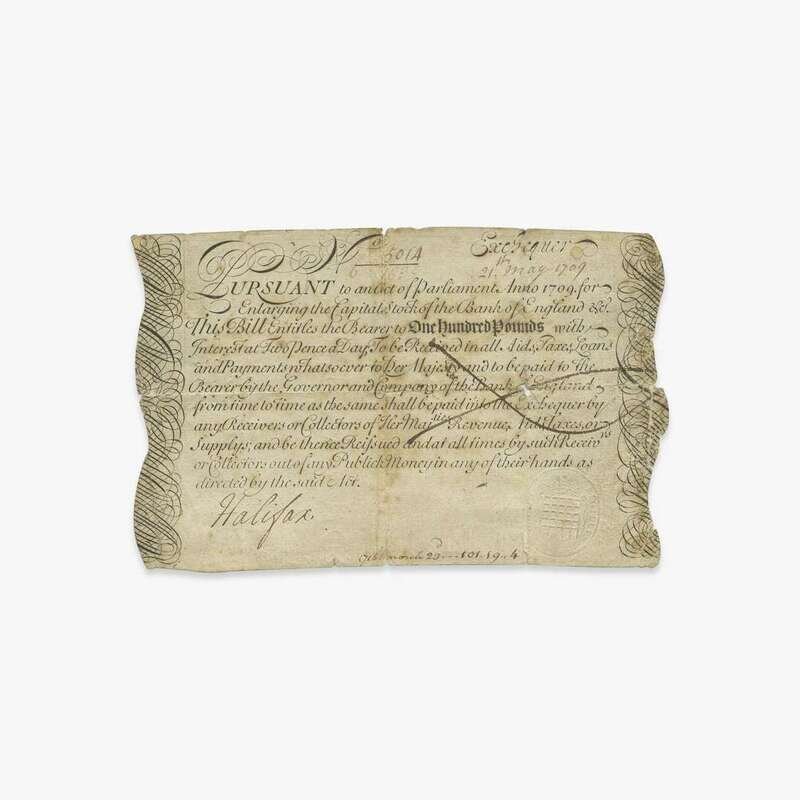 No 5014 Exchequer
21th May 1709
PURSUANT to an Act of Parliament Anno 1709. for
Enlarging the Capital Stock of the Bank of England &c.
This Bill Entitles the Bearer to One Hundred Pounds with
Interest at Two Pence a Day, To be Received in all Aids, Taxes, Loans
and Payments whatsoever to Her Majesty and to be paid to the
Bearer by the Governor and Company of the Bank of England
from time to time as the same shall be paid into the Exchequer by
any Receivers or Collectors of Her Majties Revenue, Aids, Taxes, or
Supplys; and be thence Reissued and at all times by such Receivrs
or Collectors out of any Publick Money in any of their hands as
directed by the said Act.
Halifax
march 23 101.19.4